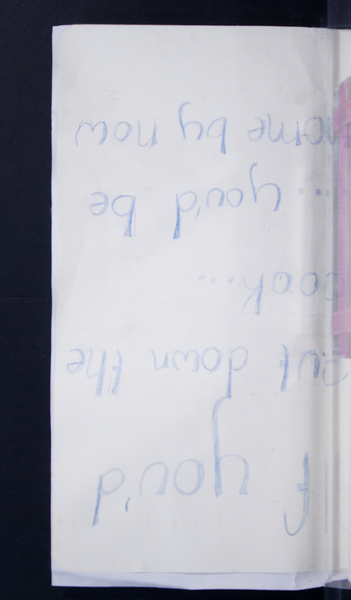 f you'd
put down the
ook...
...you'd be
home by now